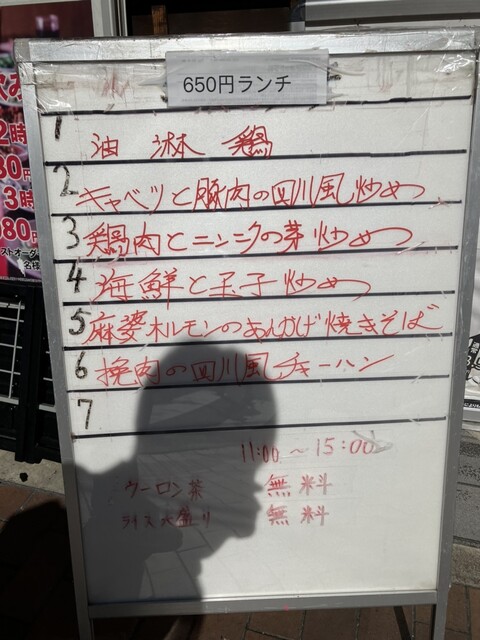 650円ランチ
1 油淋鶏
2 キャベツと豚肉の四川風炒め
3 鶏肉とニンニクの芽炒め
4 海鮮と玉子炒め
5 麻婆ホルモンのあんかけ焼きそば
6 挽肉の四川風チャーハン
7
11:00~15:00
ウーロン茶 無料
ライス大盛り 無料